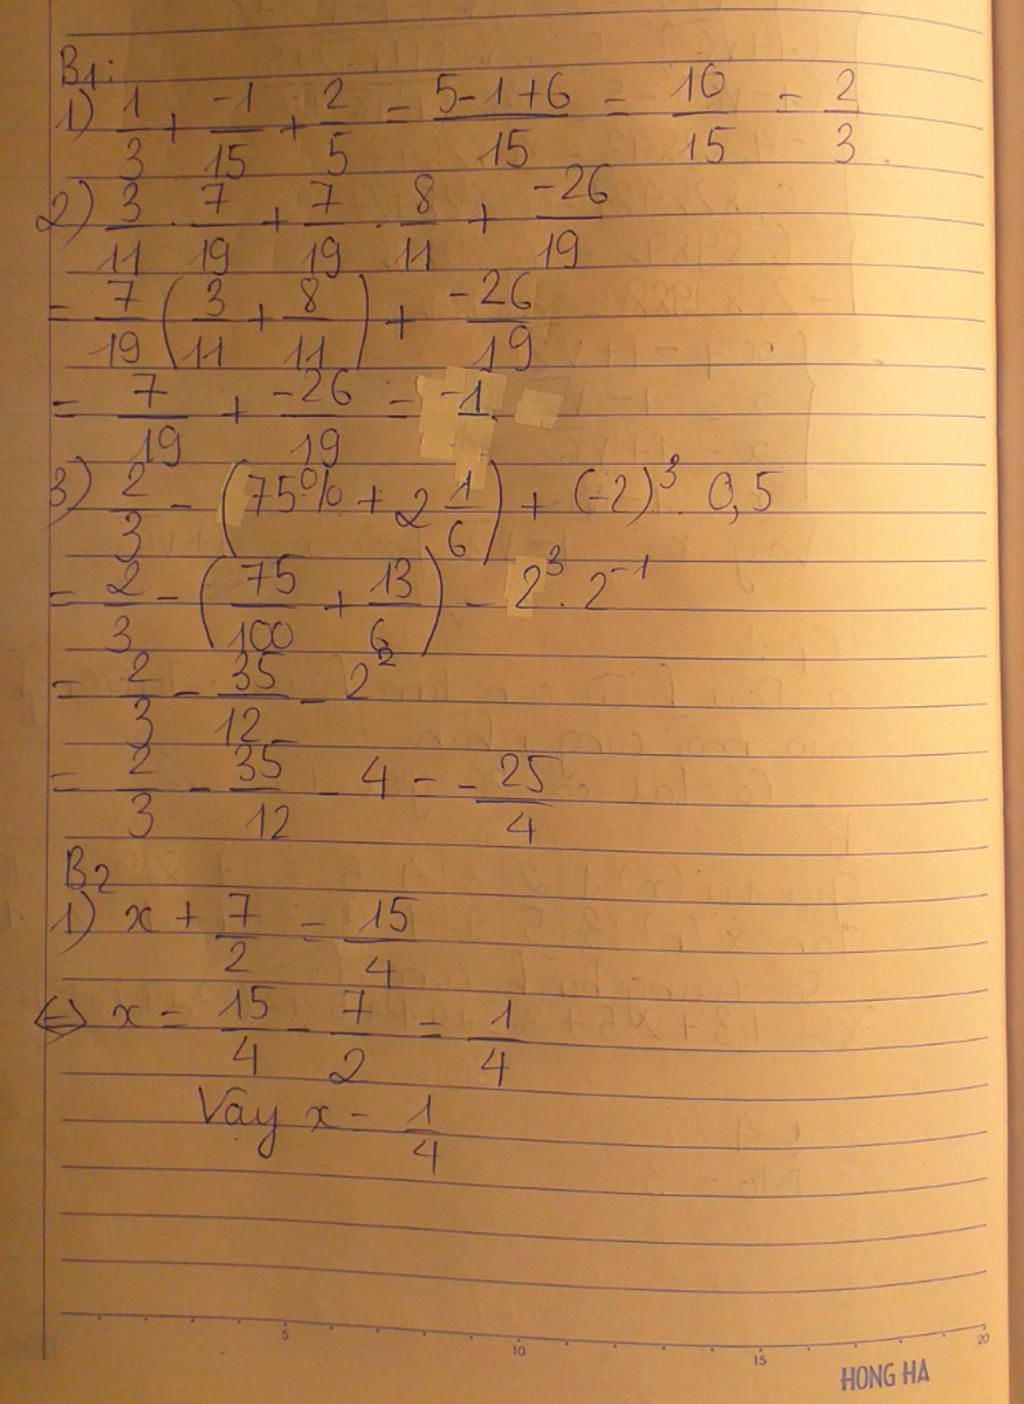 B1:
1) 1/3 + -1/15 + 2/5 = 5-1+6/15 = 10/15 = 2/3
2) 3/11 . 7/19 + 7/19 . 8/11 + -26/19
= 7/19 (3/11 + 8/11) + -26/19
= 7/19 + -26/19 = -1
3) 2/3 - (75% + 2 1/6) + (-2)³ . 0,5
= 2/3 - (75/100 + 13/6) - 2³ . 2⁻¹
= 2/3 - 35/12 - 2²
= 2/3 - 35/12 - 4 = - 25/4
B2
1) x + 7/2 = 15/4
⇔ x = 15/4 - 7/2 = 1/4
Vậy x = 1/4
5 10 15 20
HONG HA